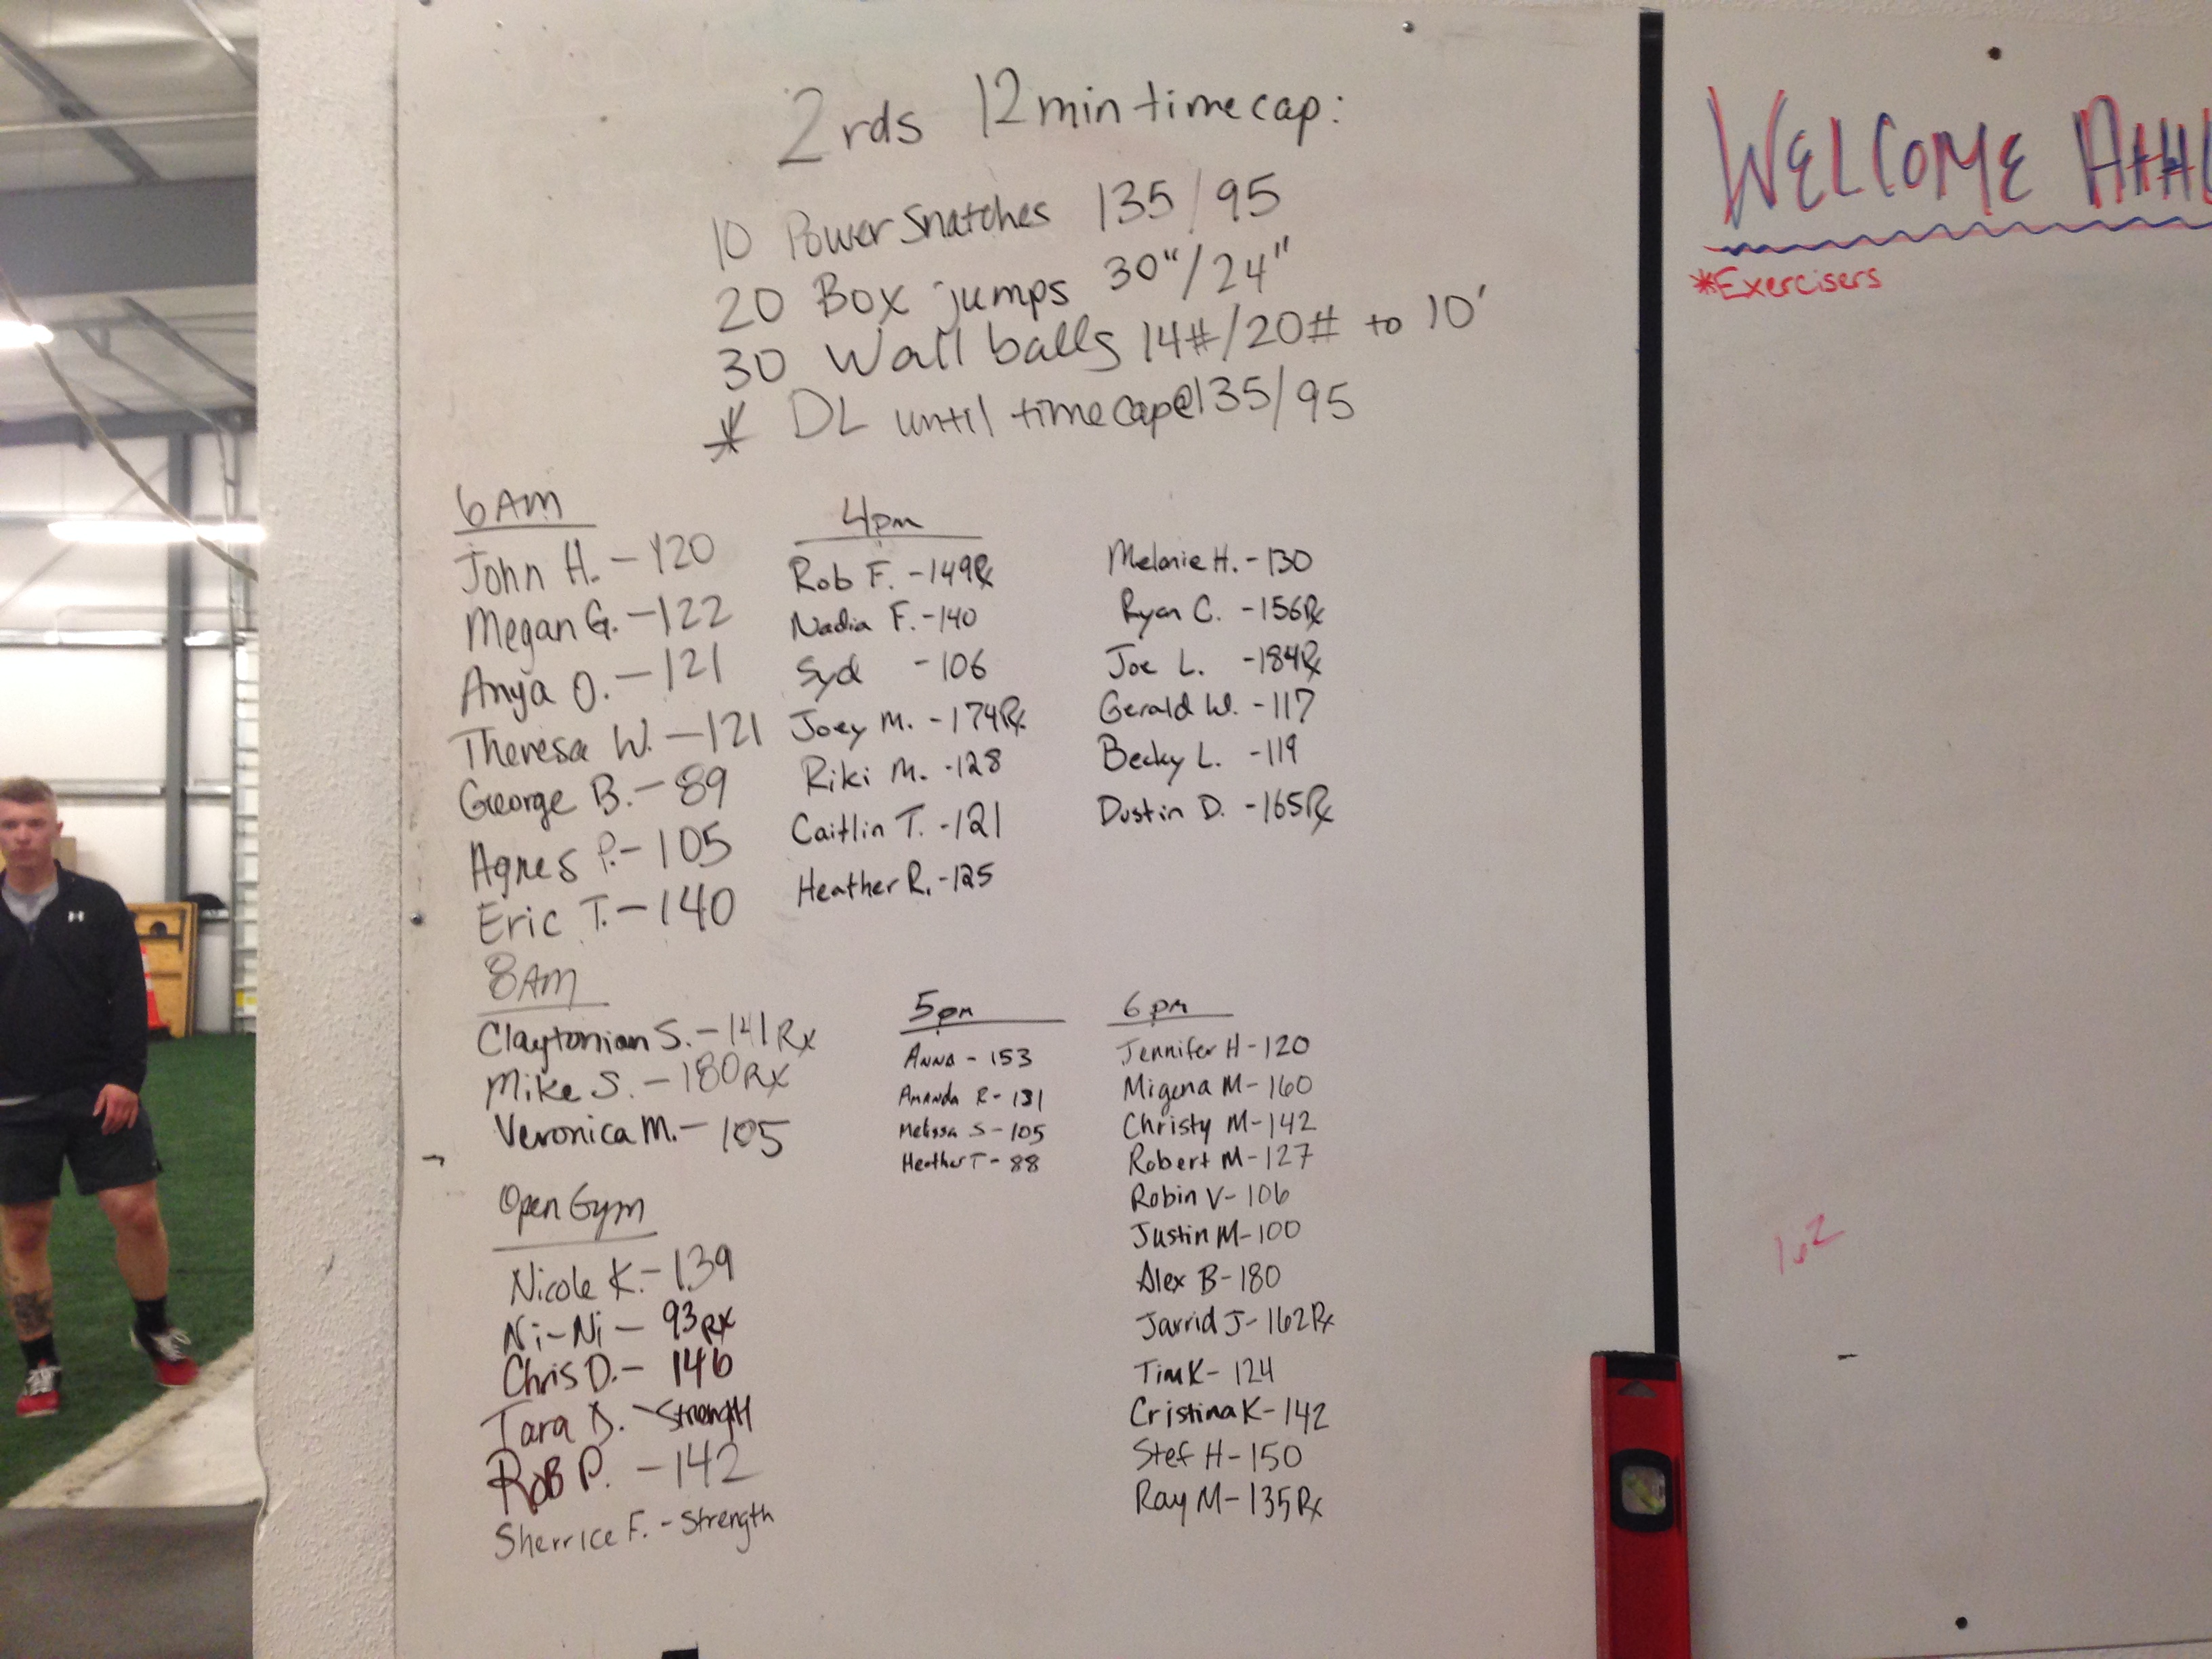 2 rds 12 min time cap:
10 Power Snatches 135/95
20 Box jumps 30"/24"
30 Wall balls 14#/20# to 10'
* DL until time cap@135/95
6AM
John H. - 120
Megan G. - 122
Anya O. - 121
Theresa W. - 121
George B. - 89
Agnes P. - 105
Eric T. - 140
4pm
Rob F. - 149Rx
Nadia F. - 140
Syd - 106
Joey M. - 174Rx
Riki M. - 128
Caitlin T. - 121
Heather R. - 125
Melanie H. - 130
Ryan C. - 156Rx
Joe L. - 184Rx
Gerald W. - 117
Becky L. - 119
Dustin D. - 165Rx
8AM
Claytonian S. - 141Rx
Mike S. - 180Rx
Veronica M. - 105
5pm
Anna - 153
Amanda R - 131
Melissa S - 105
Heather T - 88
6pm
Jennifer H - 120
Migena M - 160
Christy M - 142
Robert M - 127
Robin V - 106
Justin M - 100
Alex B - 180
Jarrid J - 162Rx
Tim K - 124
Cristina K - 142
Stef H - 150
Ray M - 135Rx
Open Gym
Nicole K. - 139
Ni-Ni - 93Rx
Chris D. - 146
Tara D. - Strength
Rob P. - 142
Sherrice F. - Strength
WELCOME
*Exercisers
162